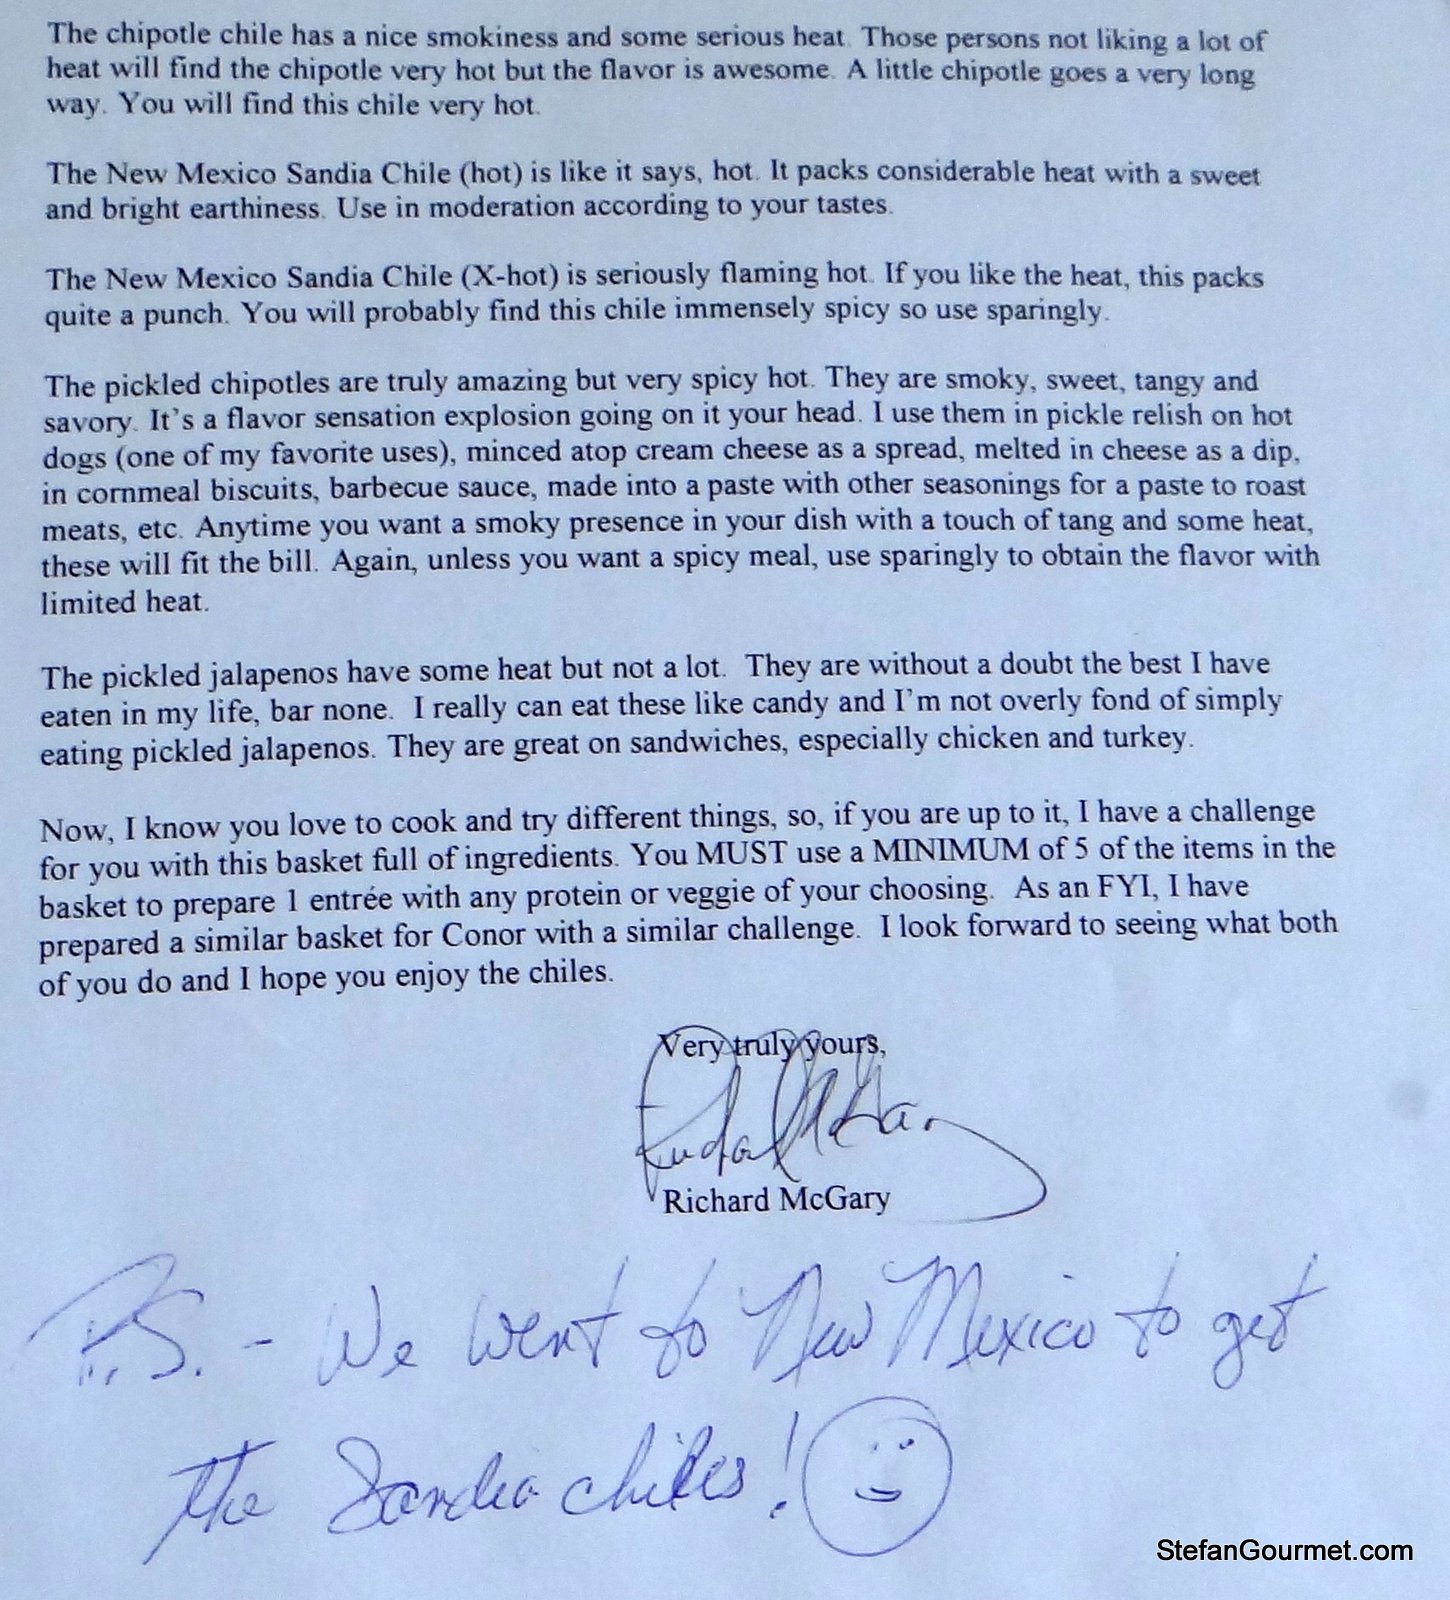 The chipotle chile has a nice smokiness and some serious heat. Those persons not liking a lot of
heat will find the chipotle very hot but the flavor is awesome. A little chipotle goes a very long
way. You will find this chile very hot.
The New Mexico Sandia Chile (hot) is like it says, hot. It packs considerable heat with a sweet
and bright earthiness. Use in moderation according to your tastes.
The New Mexico Sandia Chile (X-hot) is seriously flaming hot. If you like the heat, this packs
quite a punch. You will probably find this chile immensely spicy so use sparingly.
The pickled chipotles are truly amazing but very spicy hot. They are smoky, sweet, tangy and
savory. It's a flavor sensation explosion going on it your head. I use them in pickle relish on hot
dogs (one of my favorite uses), minced atop cream cheese as a spread, melted in cheese as a dip,
in cornmeal biscuits, barbecue sauce, made into a paste with other seasonings for a paste to roast
meats, etc. Anytime you want a smoky presence in your dish with a touch of tang and some heat,
these will fit the bill. Again, unless you want a spicy meal, use sparingly to obtain the flavor with
limited heat.
The pickled jalapenos have some heat but not a lot. They are without a doubt the best I have
eaten in my life, bar none. I really can eat these like candy and I'm not overly fond of simply
eating pickled jalapenos. They are great on sandwiches, especially chicken and turkey.
Now, I know you love to cook and try different things, so, if you are up to it, I have a challenge
for you with this basket full of ingredients. You MUST use a MINIMUM of 5 of the items in the
basket to prepare 1 entrée with any protein or veggie of your choosing. As an FYI, I have
prepared a similar basket for Conor with a similar challenge. I look forward to seeing what both
of you do and I hope you enjoy the chiles.
Very truly yours,
Richard McGary
P.S. - We went to New Mexico to get
the Sandia chiles!
StefanGourmet.com